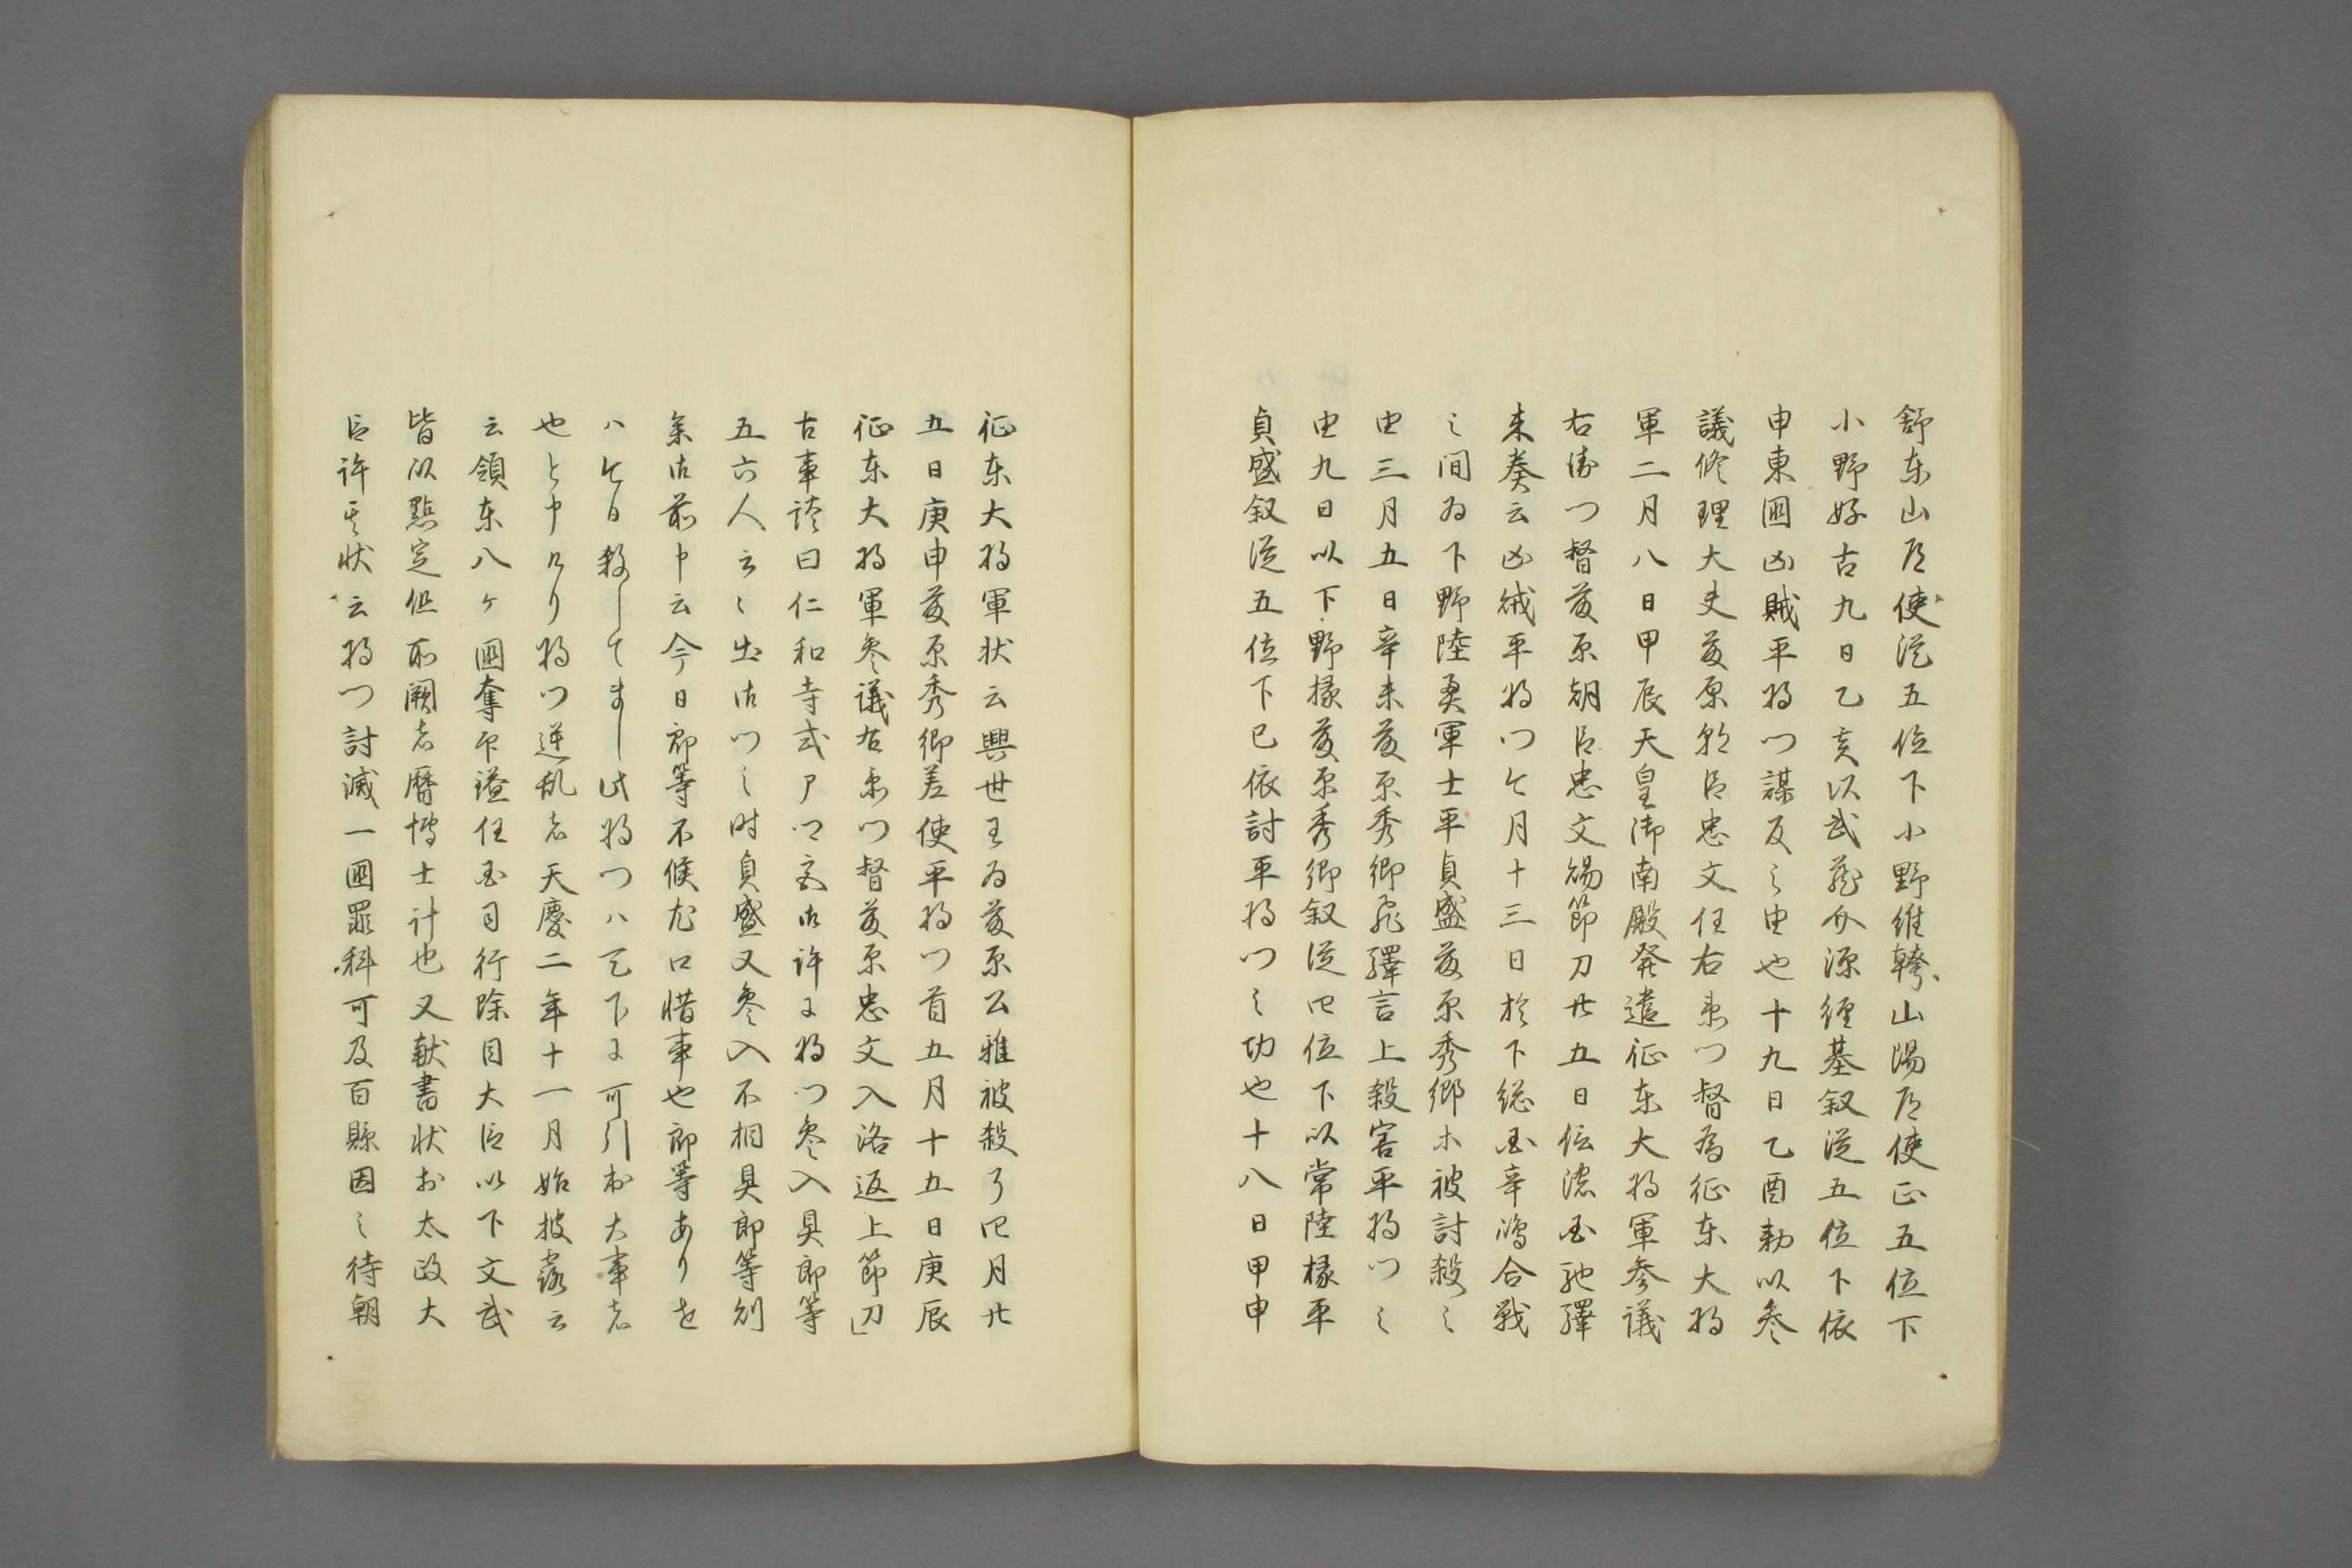 舒東山道使從五位下小野維幹山陽道使正五位下
小野好古九日乙亥以武蔵介源經基叙從五位下依
申東國凶賊平将門謀反之由也十九日乙酉勅以参
議修理大夫藤原朝臣忠文任右衛門督為征東大将
軍二月八日甲辰天皇御南殿発遣征東大将軍参議
右衛門督藤原朝臣忠文賜節刀廿五日信濃国馳驛
来奏云凶賊平将門今月十三日於下総国辛嶋合戦
之間為下野陸奥軍士平貞盛藤原秀郷等被討殺之
由三月五日辛未藤原秀郷飛驛言上殺害平将門之
由九日以下野掾藤原秀郷叙從四位下以常陸掾平
貞盛叙從五位下已依討平将門之功也十八日甲申
征東大将軍状云興世王為藤原公雅被殺了四月廿
五日庚申藤原秀郷差使平将門首五月十五日庚辰
征東大将軍参議右衛門督藤原忠文入洛返上節刀」
古事談曰仁和寺式ア卿宮御許に将門参入具郎等
五六人云々出御門之時貞盛又参入不相具郎等則
参御前申云今日郎等不候尤口惜事也郎等ありせ
ハ今日殺してまし此将門ハ天下に可引出大事者
也と申けり将門逆乱者天慶二年十一月始披露云
云領東八ヶ國奪印鎰任国司行除目大臣以下文武
皆以點定但所闕者暦博士計也又献書状於太政大
臣許其状云将門討滅一國罪科可及百縣因之待朝